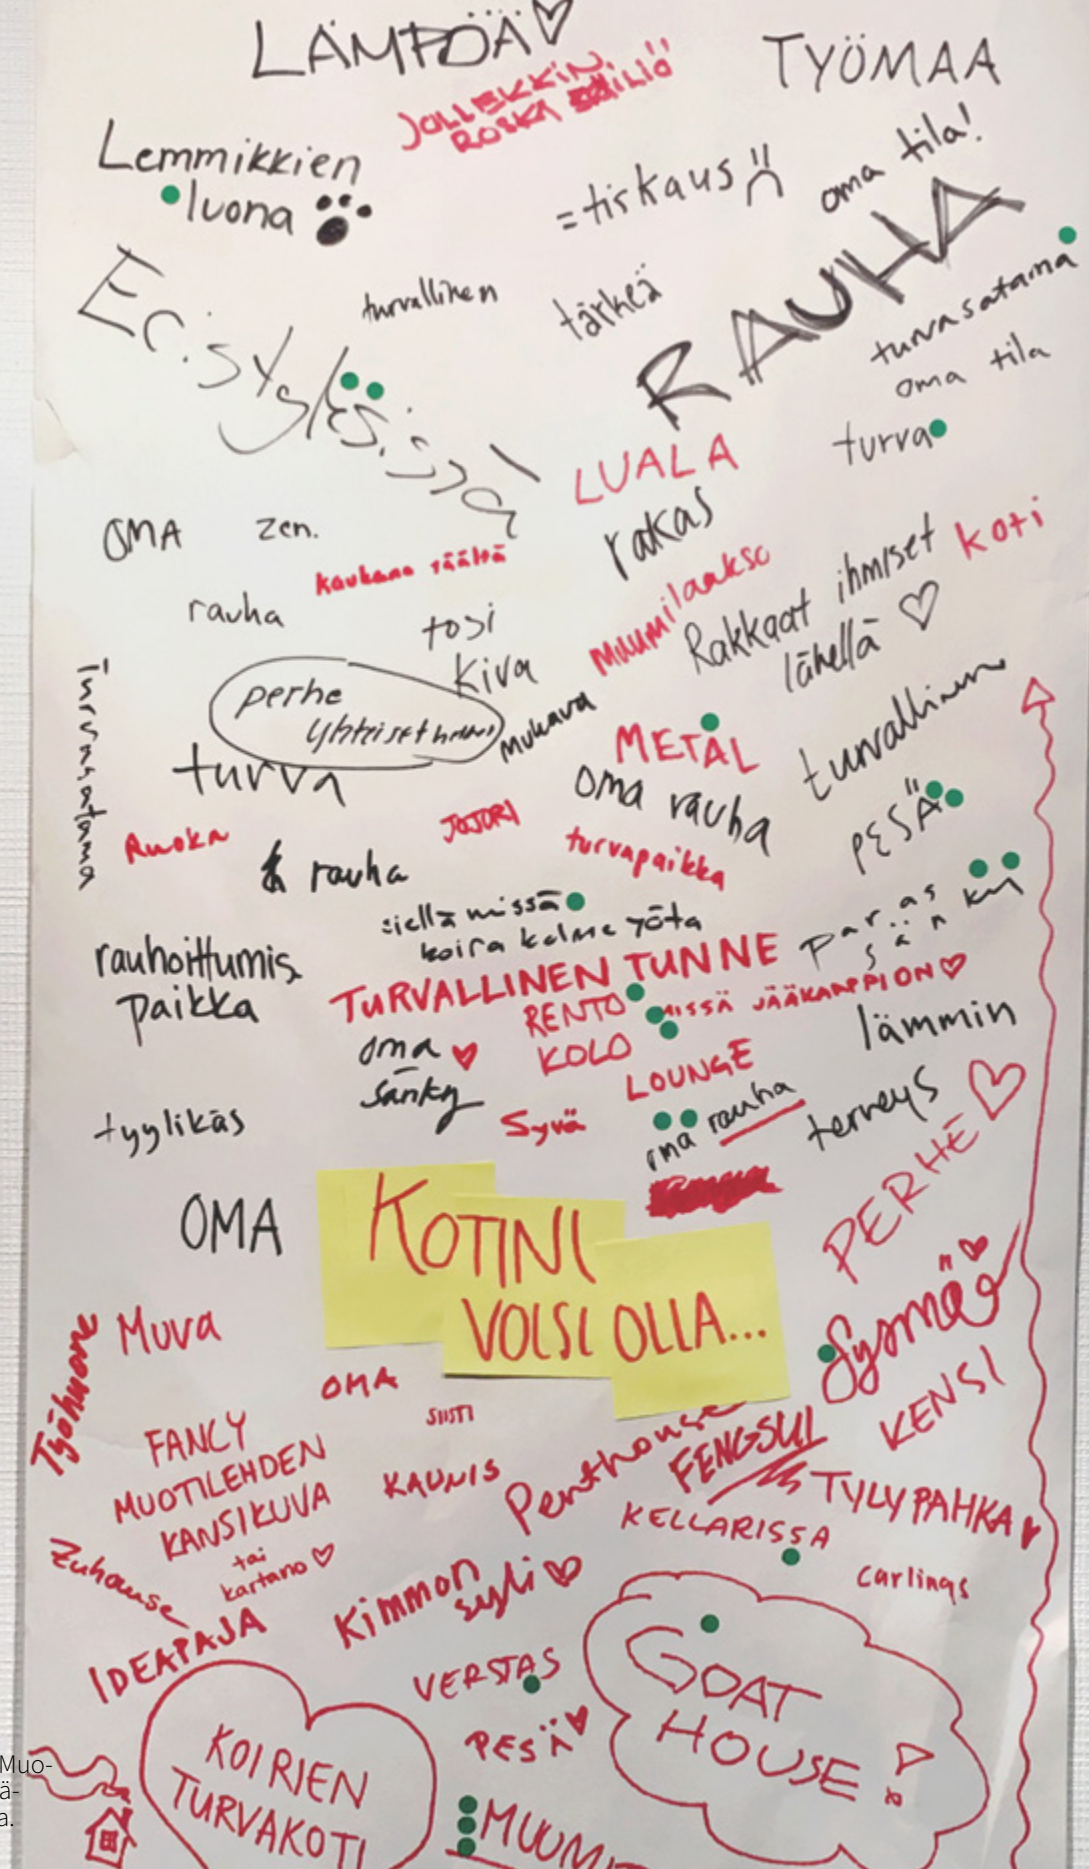 LÄMPÖÄ♡
TYÖMAA
JOLLEKKIN
ROSKA
Lemmikkien
luona
=tiskaus
oma tila!
RAUHA
turvasatama
oma tila
turvallinen
tärkeä
Eristyksissä!
turva
LUALA
rakas
OMA
zen.
kaukana täältä
koti
Muumilaakso
Rakkaat ihmiset
lähellä ♡
rauha
tosi
kiva
perhe
yhteiset
turva
turvasatama
mukava
METAL
turvallinen
oma rauha
PESÄ
Ruoka
JOJORI
rauha
turvapaikka
siellä missä
koira kolme yötä
paras
rauhoittumis
paikka
TURVALLINEN TUNNE
RENTO
MISSÄ JÄÄKAAPPI ON ♡
KOLO
lämmin
oma ♥
sänky
LOUNGE
tyylikäs
Syvä
oma rauha
terveys
PERHE ♡
OMA
KOTINI
VOISI OLLA...
Muva
Työhuone
OMA
SIISTI
KENSI
FANCY
MUOTILEHDEN
KANSIKUVA
tai
kartano ♡
KAUNIS
Penthouse
FENGSUI
TYLYPAHKA ♥
KELLARISSA
carlings
Zuhause
IDEAPAJA
Kimmon
syli ♡
VERSTAS
GOAT
HOUSE!
PESÄ ♥
KOIRIEN
TURVAKOTI
MUUMI
Muo-
ä-
a.